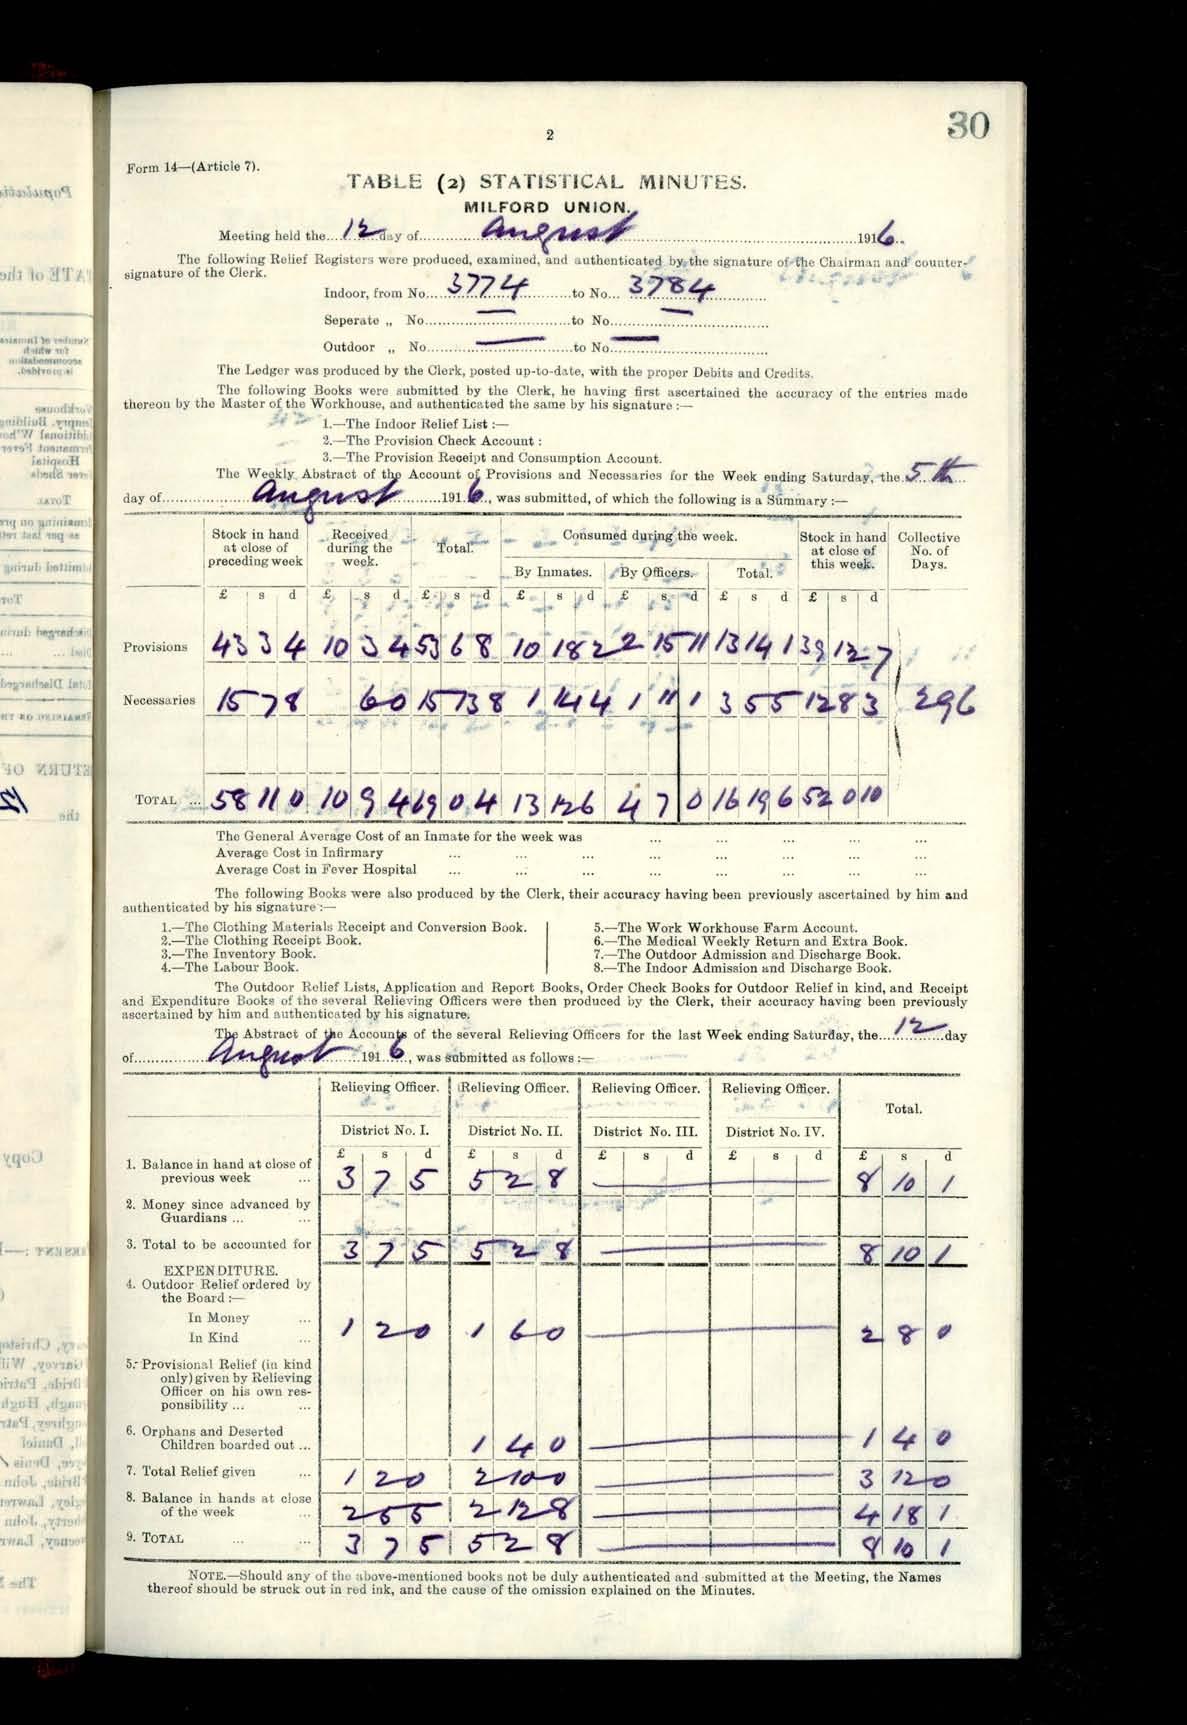 30
2
Form 14—(Article 7).
TABLE (2) STATISTICAL MINUTES.
MILFORD UNION.
Meeting held the 12 day of August 1916
The following Relief Registers were produced, examined, and authenticated by the signature of the Chairman and counter-
signature of the Clerk.
Indoor, from No. 3774 to No. 3784
Seperate „ No. — to No. —
Outdoor „ No. — to No. —
The Ledger was produced by the Clerk, posted up-to-date, with the proper Debits and Credits.
The following Books were submitted by the Clerk, he having first ascertained the accuracy of the entries made
thereon by the Master of the Workhouse, and authenticated the same by his signature :—
1.—The Indoor Relief List :—
2.—The Provision Check Account :
3.—The Provision Receipt and Consumption Account.
The Weekly Abstract of the Account of Provisions and Necessaries for the Week ending Saturday, the 5th
day of August 1916, was submitted, of which the following is a Summary :—
Stock in hand at close of preceding week Received during the week. Total. Consumed during the week. Stock in hand at close of this week. Collective No. of Days.
By Inmates. By Officers. Total.
£ s d £ s d £ s d £ s d £ s d £ s d £ s d
Provisions 43 3 4 10 3 4 53 6 8 10 18 2 2 15 11 13 14 1 39 12 7
Necessaries 15 7 8 6 0 15 13 8 1 14 4 1 11 1 3 5 5 12 8 3 296
TOTAL ... 58 11 0 10 9 4 69 0 4 13 12 6 4 7 0 16 19 6 52 0 10
The General Average Cost of an Inmate for the week was ... ... ... ... ...
Average Cost in Infirmary ... ... ... ... ... ... ... ...
Average Cost in Fever Hospital ... ... ... ... ... ... ... ...
The following Books were also produced by the Clerk, their accuracy having been previously ascertained by him and
authenticated by his signature :—
1.—The Clothing Materials Receipt and Conversion Book.
2.—The Clothing Receipt Book.
3.—The Inventory Book.
4.—The Labour Book.
5.—The Work Workhouse Farm Account.
6.—The Medical Weekly Return and Extra Book.
7.—The Outdoor Admission and Discharge Book.
8.—The Indoor Admission and Discharge Book.
The Outdoor Relief Lists, Application and Report Books, Order Check Books for Outdoor Relief in kind, and Receipt
and Expenditure Books of the several Relieving Officers were then produced by the Clerk, their accuracy having been previously
ascertained by him and authenticated by his signature.
The Abstract of the Accounts of the several Relieving Officers for the last Week ending Saturday, the 12 day
of August 1916, was submitted as follows :—
Relieving Officer. Relieving Officer. Relieving Officer. Relieving Officer. Total.
District No. I. District No. II. District No. III. District No. IV.
£ s d £ s d £ s d £ s d £ s d
1. Balance in hand at close of
previous week ... 3 7 5 5 2 8 — 8 10 1
2. Money since advanced by
Guardians ... ...
3. Total to be accounted for 3 7 5 5 2 8 — 8 10 1
EXPENDITURE.
4. Outdoor Relief ordered by
the Board :—
In Money ...
In Kind ... 1 2 0 1 6 0 — 2 8 0
5. Provisional Relief (in kind
only) given by Relieving
Officer on his own res-
ponsibility ... ...
6. Orphans and Deserted
Children boarded out ... 1 4 0 — 1 4 0
7. Total Relief given ... 1 2 0 2 10 0 — 3 12 0
8. Balance in hands at close
of the week ... 2 5 5 2 12 8 — 4 18 1
9. TOTAL ... ... 3 7 5 5 2 8 — 8 10 1
NOTE.—Should any of the above-mentioned books not be duly authenticated and submitted at the Meeting, the Names
thereof should be struck out in red ink, and the cause of the omission explained on the Minutes.